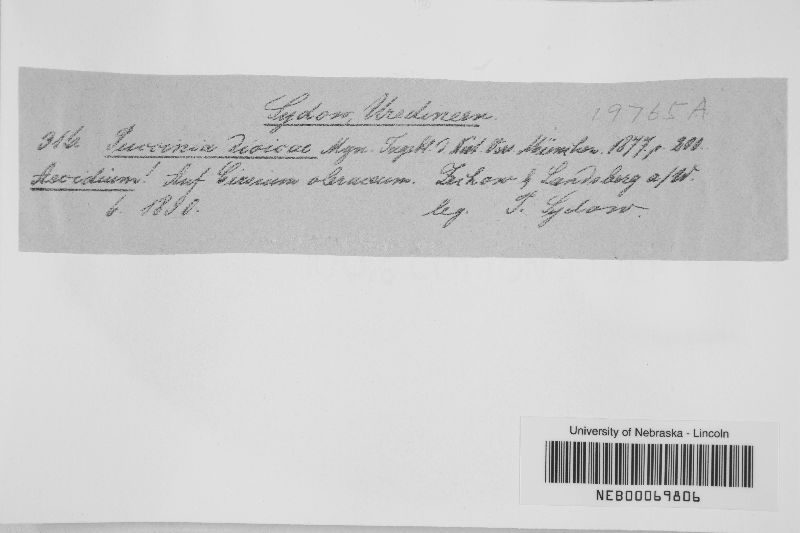 Sydow, Uredineen.
19765A
316. Puccinia Dioicae Mgn. Tagebl. d. Nat. Vers. München. 1877, p. 200.
Aecidium! Auf Cirsium oleraceum. Zechow b. Landsberg a/W.
6. 1890. leg. P. Sydow.
University of Nebraska - Lincoln
NEB00069806